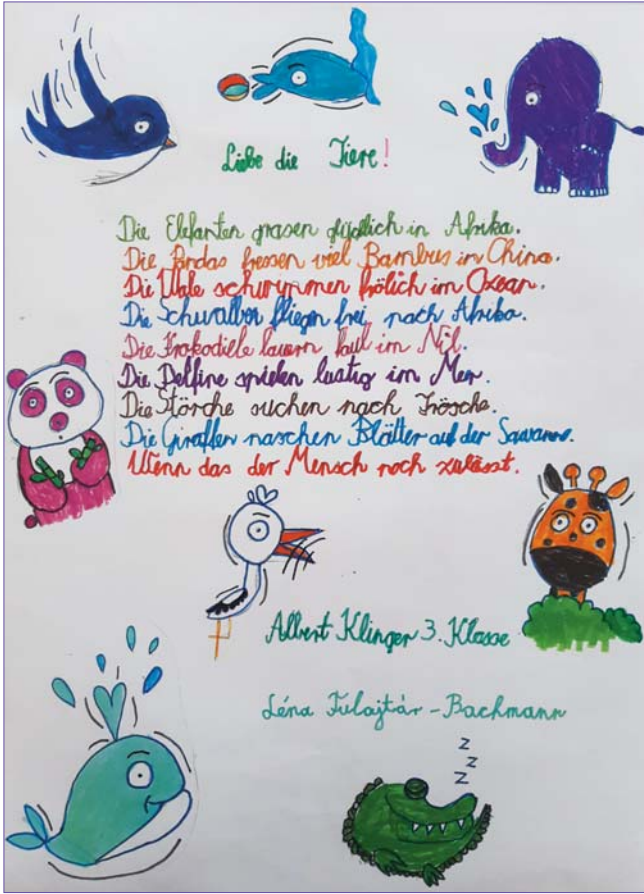 Liebe die Tiere!
Die Elefanten grasen glüdlich in Afrika.
Die Pandas fressen viel Bambus in China.
Die Wale schwymmen frölich im Ozean.
Die Schwalben fliegen frei nach Afrika.
Die Krokodiele lauern faul im Nil.
Die Delfine spielen lustig im Mer.
Die Störche suchen nach Frösche.
Die Giraffen naschen Blätter auf der Sawann.
Wenn das der Mensch noch zulässt.
Albert Klinger 3. Klasse
Léna Fulajtár-Bachmann
z
z
z